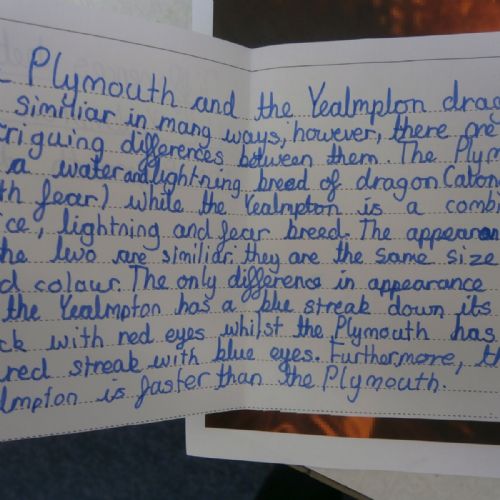 Plymouth and the Yealmpton drag
similiar in many ways, however, there are
riguing differences between them. The Plym
a water and lightning breed of dragon (along
th fear) while the Yealmpton is a combi
ice, lightning and fear breed. The appearan
he two are similiar. they are the same size
d colour. The only difference in appearance
the Yealmpton has a blue streak down its
ck with red eyes whilst the Plymouth has
red streak with blue eyes. Furthermore, th
lmpton is faster than the Plymouth.